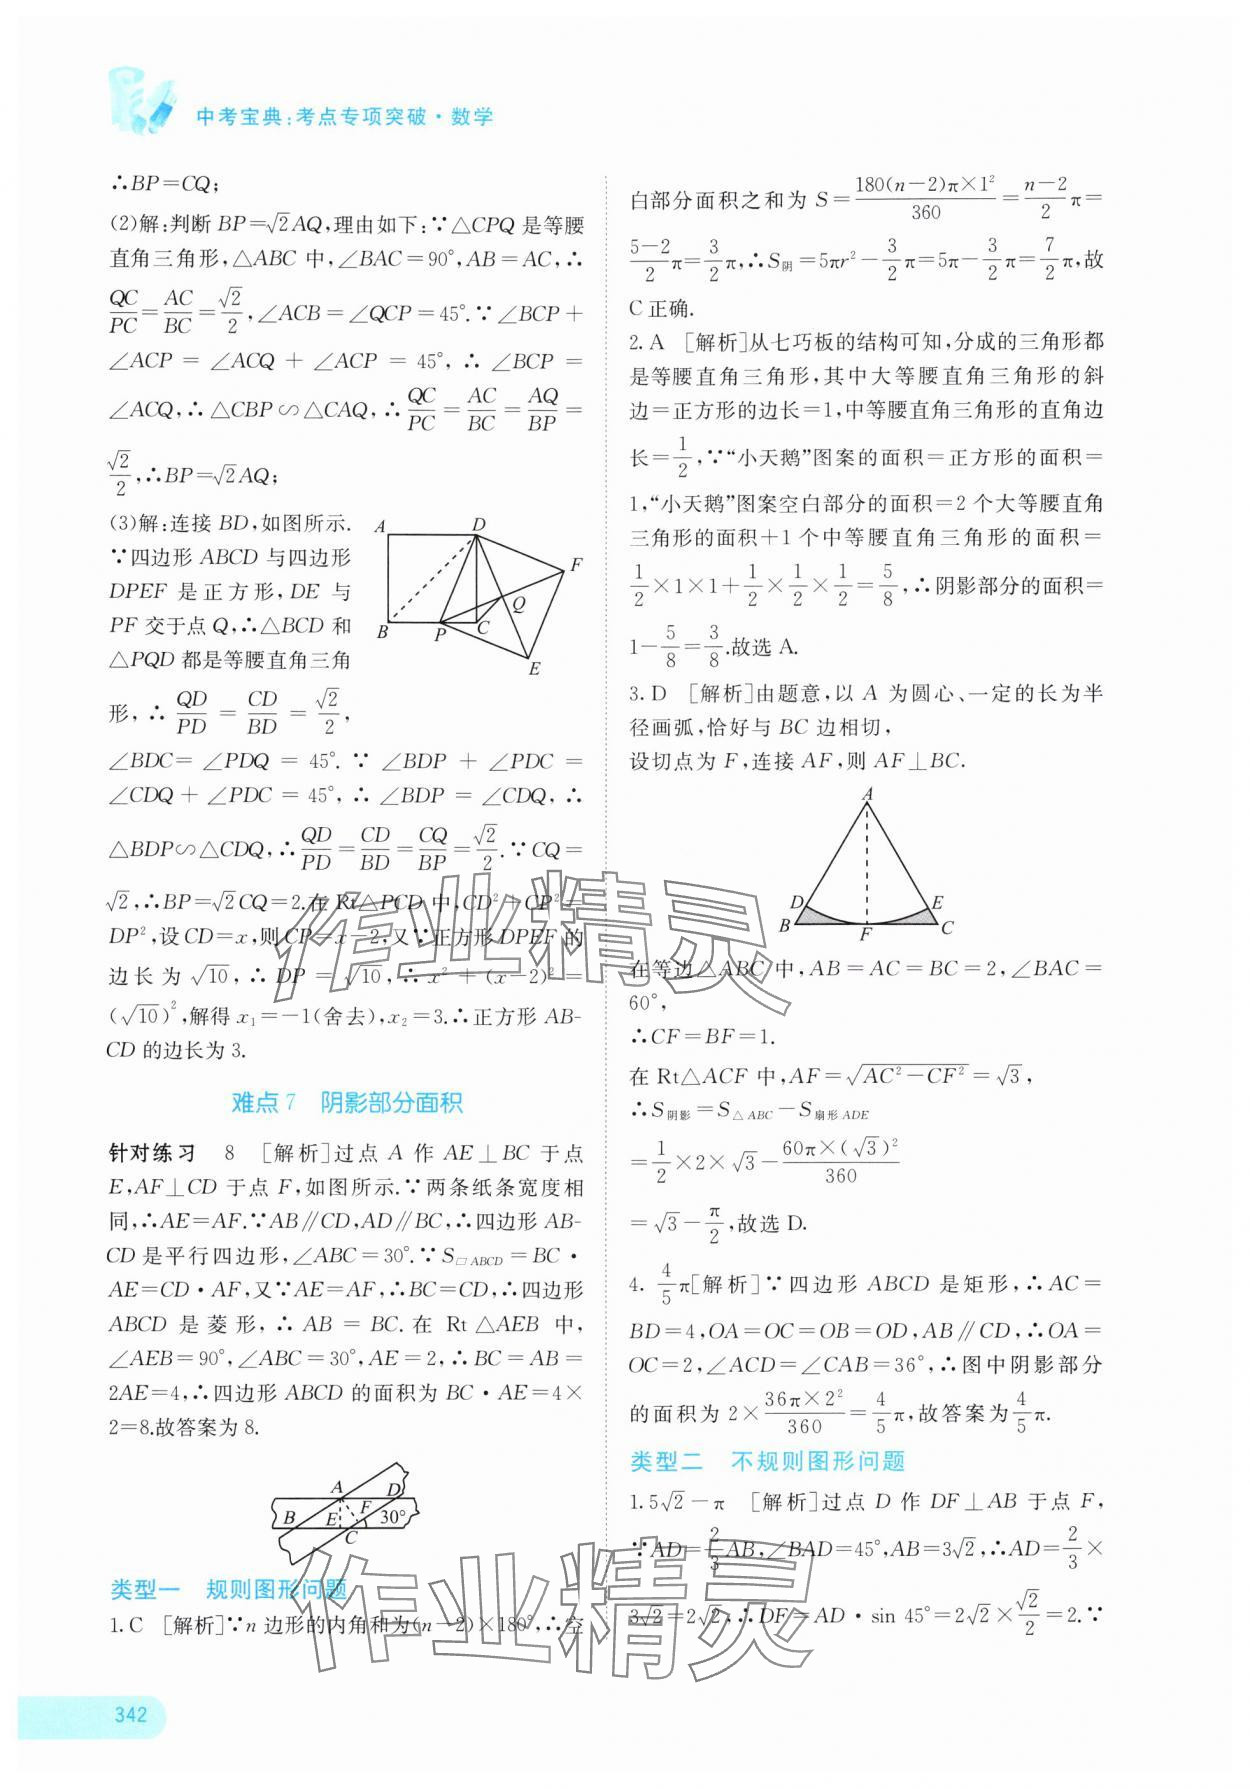 中考宝典:考点专项突破·数学
∴BP=CQ;
(2)解:判断 BP=√2AQ,理由如下:∵△CPQ 是等腰
直角三角形,△ABC 中,∠BAC=90°,AB=AC,∴
QC/PC=AC/BC=√2/2,∠ACB=∠QCP=45°.∵∠BCP+
∠ACP=∠ACQ+∠ACP=45°,∴∠BCP=
∠ACQ,∴△CBP∽△CAQ,∴QC/PC=AC/BC=AQ/BP=
√2/2,∴BP=√2AQ;
(3)解:连接 BD,如图所示.
∵四边形 ABCD 与四边形
DPEF 是正方形,DE 与
PF 交于点 Q,∴△BCD 和
△PQD 都是等腰直角三角
形,∴QD/PD=CD/BD=√2/2,
A D F Q B P C E
∠BDC=∠PDQ=45°.∵∠BDP+∠PDC=
∠CDQ+∠PDC=45°,∴∠BDP=∠CDQ,∴
△BDP∽△CDQ,∴QD/PD=CD/BD=CQ/BP=√2/2.∵CQ=
√2,∴BP=√2CQ=2.在 Rt△PCD 中,CD²+CP²=
DP²,设 CD=x,则 CP=x-2,又∵正方形 DPEF 的
边长为√10,∴DP=√10,∴x²+(x-2)²=
(√10)²,解得 x₁=-1(舍去),x₂=3.∴正方形 AB-
CD 的边长为 3.
难点 7 阴影部分面积
针对练习 8 [解析]过点 A 作 AE⊥BC 于点
E,AF⊥CD 于点 F,如图所示.∵两条纸条宽度相
同,∴AE=AF.∵AB∥CD,AD∥BC,∴四边形 AB-
CD 是平行四边形,∠ABC=30°.∵S▱ABCD=BC·
AE=CD·AF,又∵AE=AF,∴BC=CD,∴四边形
ABCD 是菱形,∴AB=BC.在 Rt△AEB 中,
∠AEB=90°,∠ABC=30°,AE=2,∴BC=AB=
2AE=4,∴四边形 ABCD 的面积为 BC·AE=4×
2=8.故答案为 8.
A D B E F C 30°
类型一 规则图形问题
1.C [解析]∵n 边形的内角和为(n-2)×180°,∴空
白部分面积之和为 S=180(n-2)π×1²/360=(n-2)/2π=
(5-2)/2π=3/2π,∴S阴=5πr²-3/2π=5π-3/2π=7/2π,故
C 正确.
2.A [解析]从七巧板的结构可知,分成的三角形都
是等腰直角三角形,其中大等腰直角三角形的斜
边=正方形的边长=1,中等腰直角三角形的直角边
长=1/2,∵“小天鹅”图案的面积=正方形的面积=
1,“小天鹅”图案空白部分的面积=2 个大等腰直角
三角形的面积+1 个中等腰直角三角形的面积=
1/2×1×1+1/2×1/2×1/2=5/8,∴阴影部分的面积=
1-5/8=3/8.故选 A.
3.D [解析]由题意,以 A 为圆心、一定的长为半
径画弧,恰好与 BC 边相切,
设切点为 F,连接 AF,则 AF⊥BC.
A D E B F C
在等边△ABC 中,AB=AC=BC=2,∠BAC=
60°,
∴CF=BF=1.
在 Rt△ACF 中,AF=√(AC²-CF²)=√3,
∴S阴影=S△ABC-S扇形ADE
=1/2×2×√3-60π×(√3)²/360
=√3-π/2,故选 D.
4. 4/5π[解析]∵四边形 ABCD 是矩形,∴AC=
BD=4,OA=OC=OB=OD,AB∥CD,∴OA=
OC=2,∠ACD=∠CAB=36°,∴图中阴影部分
的面积为 2×36π×2²/360=4/5π,故答案为4/5π.
类型二 不规则图形问题
1.5√2-π [解析]过点 D 作 DF⊥AB 于点 F,
∵AD=2/3AB,∠BAD=45°,AB=3√2,∴AD=2/3×
3√2=2√2,∴DF=AD·sin 45°=2√2×√2/2=2.∵
342
作业精灵
作业精灵